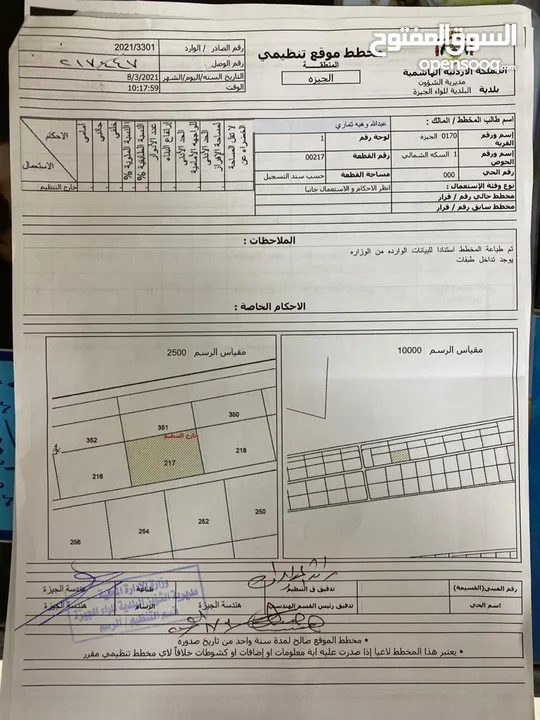 السوق المفتوح
opensooq.com
رقم الصادر / الوارد 2021/3301
رقم الوصل
التاريخ السنه/اليوم/الشهر 8/3/2021
الوقت 10:17:59
مخطط موقع تنظيمي
المنطقة
الجيزه
المملكة الاردنية الهاشمية
مديرية الشؤون
بلدية البلدية للواء الجيزة
اسم طالب المخطط / المالك : عبدالله وهبه تماري
إسم ورقم القرية 0170 الجيزة
لوحة رقم 1
إسم ورقم الحوض 1 السكه الشمالي
رقم القطعة 00217
رقم الحي 000
مساحة القطعة حسب سند التسجيل
نوع وفئة الإستعمال : انظر الاحكام و الاستعمال جانبا
مخطط حالي رقم / قرار
مخطط سابق رقم / قرار
الاحكام
الاستعمال
أمامي
جانبي
خلفي
النسبة المئوية %
النسبة الطابقية %
عدد الأدوار
إرتفاع البناء
الحد الأدنى للواجهه الأمامية
الحد الأدنى لمساحة الإفراز
لا تقل المساحة الخضراء عن
خارج التنظيم
الملاحظات :
تم طباعة المخطط استنادا للبيانات الوارده من الوزاره
يوجد تداخل طبقات
الاحكام الخاصة :
مقياس الرسم 10000
مقياس الرسم 2500
360
361
352
خارج التنظيم
218
217
216
250
252
254
256
رقم المبنى(القسيمة)
تدقيق ف التنظيم
طباعة
هندسة الجيزة
اسم الحي
تدقيق رئيس القسم الهندسي
هندسة الجيزة
الرسام
هندسة الجيزة
وزارة الإدارة المحلية
مديرية الشؤون البلدية للواء الجيزة
قسم التنظيم / الرسم
• مخطط الموقع صالح لمدة سنة واحد من تاريخ صدورة
• يعتبر هذا المخطط لاغيا إذا صدرت عليه اية معلومات او إضافات او كشوطات خلافاً لاي مخطط تنظيمي مقرر